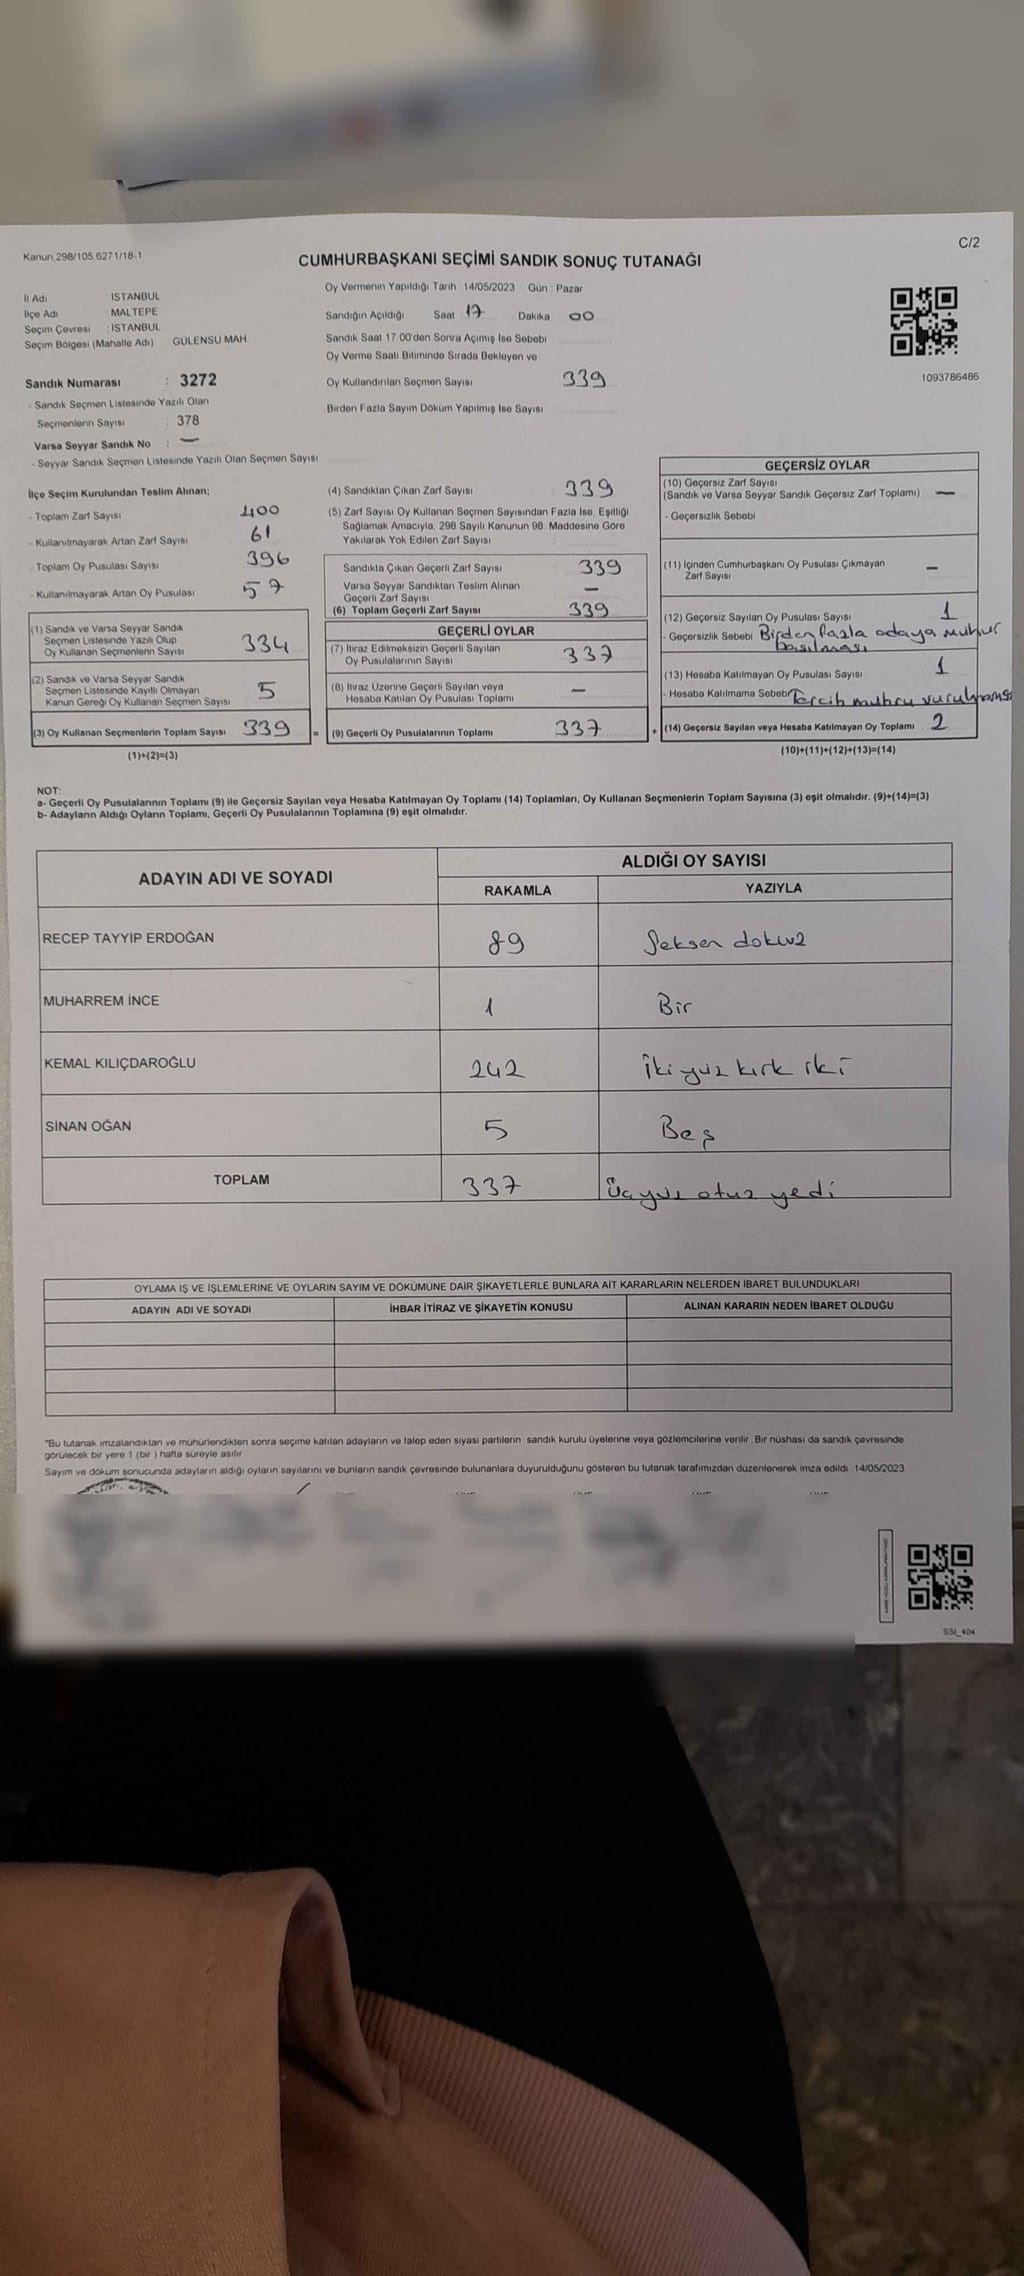 Kanun 298/105 6271/18-1
C/2
CUMHURBAŞKANI SEÇİMİ SANDIK SONUÇ TUTANAĞI
İl Adı İSTANBUL
İlçe Adı MALTEPE
Seçim Çevresi : İSTANBUL
Seçim Bölgesi (Mahalle Adı) GÜLENSU MAH
Oy Vermenin Yapıldığı Tarih 14/05/2023 Gün : Pazar
Sandığın Açıldığı Saat 17 Dakika 00
Sandık Saat 17:00'den Sonra Açımış İse Sebebi
Oy Verme Saati Bitiminde Sırada Bekleyen ve
Oy Kullandırılan Seçmen Sayısı 339
Birden Fazla Sayım Döküm Yapılmış İse Sayısı
1093786486
Sandık Numarası : 3272
- Sandık Seçmen Listesinde Yazılı Olan
Seçmenlerin Sayısı : 378
Varsa Seyyar Sandık No : —
- Seyyar Sandık Seçmen Listesinde Yazılı Olan Seçmen Sayısı
İlçe Seçim Kurulundan Teslim Alınan;
- Toplam Zarf Sayısı 400
- Kullanılmayarak Artan Zarf Sayısı 61
- Toplam Oy Pusulası Sayısı 396
- Kullanılmayarak Artan Oy Pusulası 57
(1) Sandık ve Varsa Seyyar Sandık
Seçmen Listesinde Yazılı Olup
Oy Kullanan Seçmenlerin Sayısı 334
(2) Sandık ve Varsa Seyyar Sandık
Seçmen Listesinde Kayıtlı Olmayan
Kanun Gereği Oy Kullanan Seçmen Sayısı 5
(3) Oy Kullanan Seçmenlerin Toplam Sayısı 339 =
(1)+(2)=(3)
(4) Sandıktan Çıkan Zarf Sayısı : 339
(5) Zarf Sayısı Oy Kullanan Seçmen Sayısından Fazla İse, Eşitliği
Sağlamak Amacıyla, 298 Sayılı Kanunun 98. Maddesine Göre
Yakılarak Yok Edilen Zarf Sayısı
Sandıkta Çıkan Geçerli Zarf Sayısı 339
Varsa Seyyar Sandıktan Teslim Alınan
Geçerli Zarf Sayısı —
(6) Toplam Geçerli Zarf Sayısı 339
GEÇERLİ OYLAR
(7) İtiraz Edilmeksizin Geçerli Sayılan
Oy Pusulalarının Sayısı 337
(8) İtiraz Üzerine Geçerli Sayılan veya
Hesaba Katılan Oy Pusulası Toplamı —
(9) Geçerli Oy Pusulalarının Toplamı 337 +
GEÇERSİZ OYLAR
(10) Geçersiz Zarf Sayısı
(Sandık ve Varsa Seyyar Sandık Geçersiz Zarf Toplamı) —
- Geçersizlik Sebebi
(11) İçinden Cumhurbaşkanı Oy Pusulası Çıkmayan
Zarf Sayısı —
(12) Geçersiz Sayılan Oy Pusulası Sayısı 1
- Geçersizlik Sebebi Birden fazla adaya mühür
basılması
(13) Hesaba Katılmayan Oy Pusulası Sayısı 1
- Hesaba Katılmama Sebebi Tercih mührü vurulmaması
(14) Geçersiz Sayılan veya Hesaba Katılmayan Oy Toplamı 2
(10)+(11)+(12)+(13)=(14)
NOT:
a- Geçerli Oy Pusulalarının Toplamı (9) ile Geçersiz Sayılan veya Hesaba Katılmayan Oy Toplamı (14) Toplamları, Oy Kullanan Seçmenlerin Toplam Sayısına (3) eşit olmalıdır. (9)+(14)=(3)
b- Adayların Aldığı Oyların Toplamı, Geçerli Oy Pusulalarının Toplamına (9) eşit olmalıdır.
ADAYIN ADI VE SOYADI
ALDIĞI OY SAYISI
RAKAMLA YAZIYLA
RECEP TAYYİP ERDOĞAN 89 Seksen dokuz
MUHARREM İNCE 1 Bir
KEMAL KILIÇDAROĞLU 242 İki yüz kırk iki
SİNAN OĞAN 5 Beş
TOPLAM 337 Üçyüz otuz yedi
OYLAMA İŞ VE İŞLEMLERİNE VE OYLARIN SAYIM VE DÖKÜMÜNE DAİR ŞİKAYETLERLE BUNLARA AİT KARARLARIN NELERDEN İBARET BULUNDUKLARI
ADAYIN ADI VE SOYADI İHBAR İTİRAZ VE ŞİKAYETİN KONUSU ALINAN KARARIN NEDEN İBARET OLDUĞU
*Bu tutanak imzalandıktan ve mühürlendikten sonra seçime katılan adayların ve talep eden siyasi partilerin sandık kurulu üyelerine veya gözlemcilerine verilir. Bir nüshası da sandık çevresinde
görülecek bir yere 1 (bir ) hafta süreyle asılır
Sayım ve döküm sonucunda adayların aldığı oyların sayılarını ve bunların sandık çevresinde bulunanlara duyurulduğunu gösteren bu tutanak tarafımızdan düzenlenerek imza edildi. 14/05/2023
SSI_404